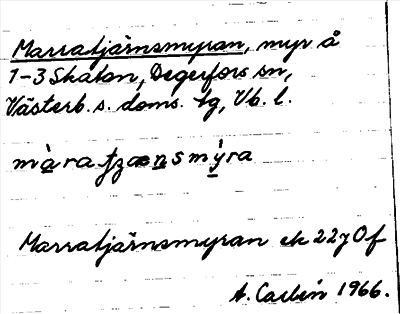 Marratjärnsmyran, myr å
1-3 Skatan, Degerfors sn,
Västerb. s. doms. tg, Vb. l.
màratjæṇsmýra
Marratjärnsmyran ek 22 j Of
A. Carlén 1966.